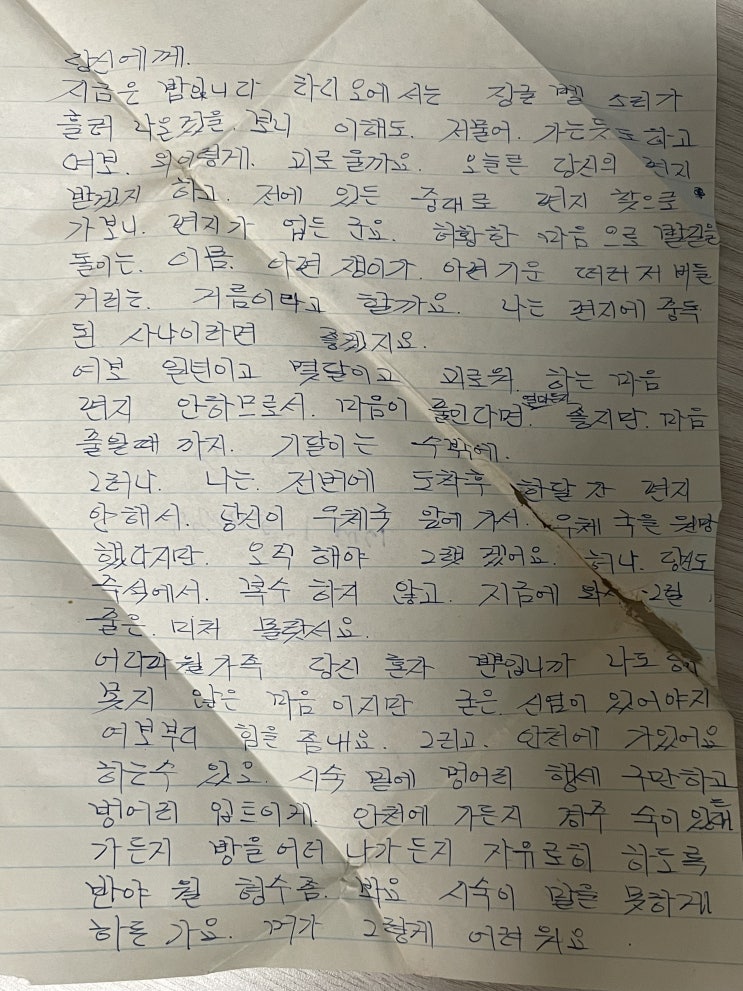 당신에게.
지금은 밤입니다 라디오에서는 징글 벨 소리가
흘러 나온것을. 보니 이해도. 저물어. 가는듯 하고
여보. 외이렇게. 괴로울까요. 오늘은 당신의 편지
받겠지 하고. 전에 있든 중대로 편지 찾으로
가보니. 편지가 업든 군요. 허황한 마음으로 발길을
돌이는. 이름. 아편 쟁이가. 아편 기운 떠러저 버들
거리는. 거름이라고 할까요. 나는 편지에 중독
된 사나이라면 좋겠지요.
여보 일년이고 몇달이고 괴로워. 하는 마음
편지 안하므로서. 마음이 풀린다면. 쓸지만. 마음
풀일때 까지. 기달이는 수밖에.
그러나. 나는. 전번에 도착후 한달 간 편지
안해서. 당신이 우체국 앞에 가서. 우체국을 원망
했다지만. 오직 해야 그랫겠어요. 허나. 당신도
추석에서. 복수 하지 않고. 지금에 와서 그럴
줄은. 미처 몰랏서요.
어디 당신 혼자 뿐입니까 나도
못지 않은 마음 이지만 굳은 신염이 있어야지
여보부디 힘을 좀내요. 그리고. 인천에 가있어요
하는수 있오. 시숙 밑에 벙어리 행세 구만하고
벙어리 입트이게. 인천에 가든지 경주 숙이 있는데
가든지 방을어더 나가든지 자유로히 하도록
반야 월 형수좀. 봐요 시숙이 말을 못하게
하든 가요. 머가 그렇게 어려워요.